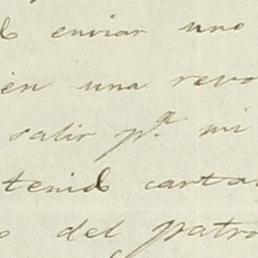 enviar uno
én una revo
salir p.ª mi
tenido carta
del patro